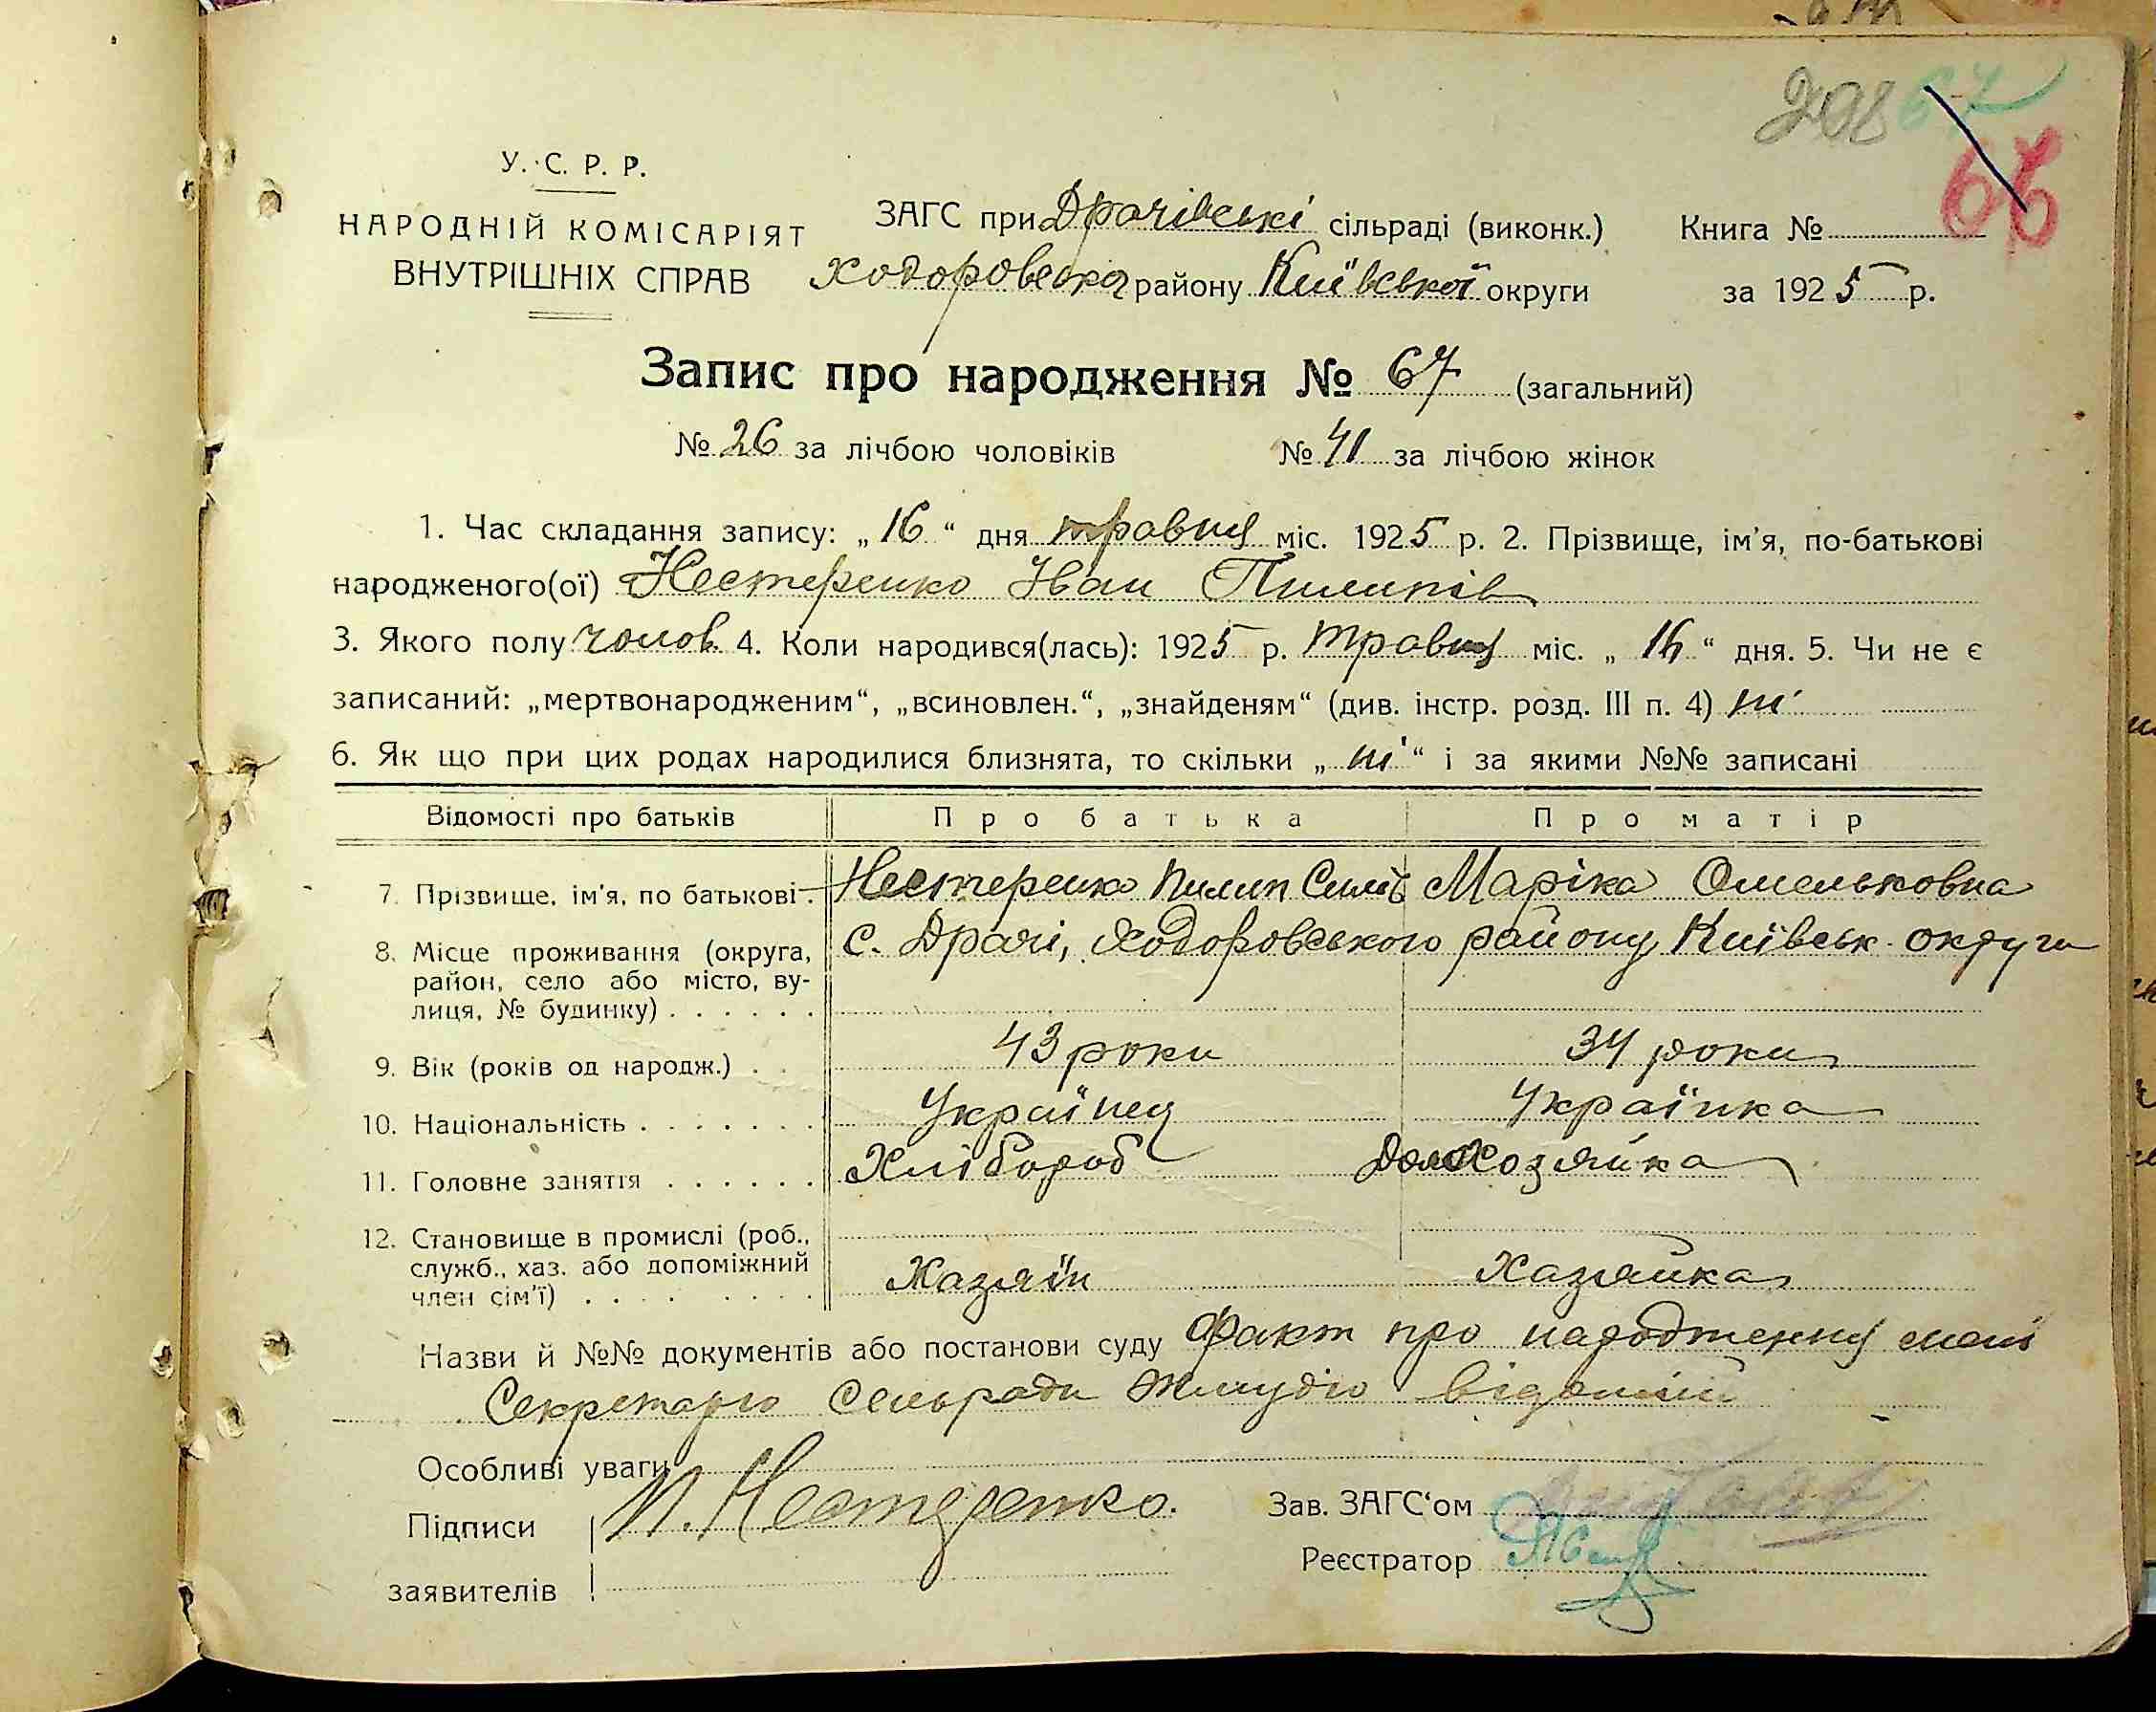 208 67
66
У. С. Р. Р.
НАРОДНІЙ КОМІСАРІЯТ
ВНУТРІШНІХ СПРАВ
ЗАГС при Драчівські сільраді (виконк.)
Ходоровськ району Київської округи
Книга №
за 1925 р.
Запис про народження № 67 (загальний)
№ 26 за лічбою чоловіків № 41 за лічбою жінок
1. Час складання запису: „16“ дня травня міс. 1925 р. 2. Прізвище, ім'я, по-батькові
народженого(ої) Нестеренко Іван Пилипів
3. Якого полу чолов. 4. Коли народився(лась): 1925 р. травня міс. „16“ дня. 5. Чи не є
записаний: „мертвонародженим“, „всиновлен.“, „знайденям“ (див. інстр. розд. III п. 4) ні
6. Як що при цих родах народилися близнята, то скільки „ні“ і за якими №№ записані
Відомості про батьків Про батька Про матір
7. Прізвище, ім'я, по батькові. Нестеренко Пилип Силів Маріка Омельковна
8. Місце проживання (округа, район, село або місто, ву-
лиця, № будинку) . . . . . .
с. Драчі, Ходоровського району Київськ. округи
9. Вік (років од народж.) . . 43 роки 34 роки
10. Національність . . . . . . . Українец Українка
11. Головне заняття . . . . . . Хлібороб Домохозяйка
12. Становище в промислі (роб.,
служб., хаз. або допоміжний
член сім'ї) . . . . . . . .
Хазяїн Хазяйка
Назви й №№ документів або постанови суду Факт про народження мені
Секретарю Сельради відомий
Особливі уваги
Підписи П. Нестеренко.
заявителів
Зав. ЗАГС‘ом
Реєстратор